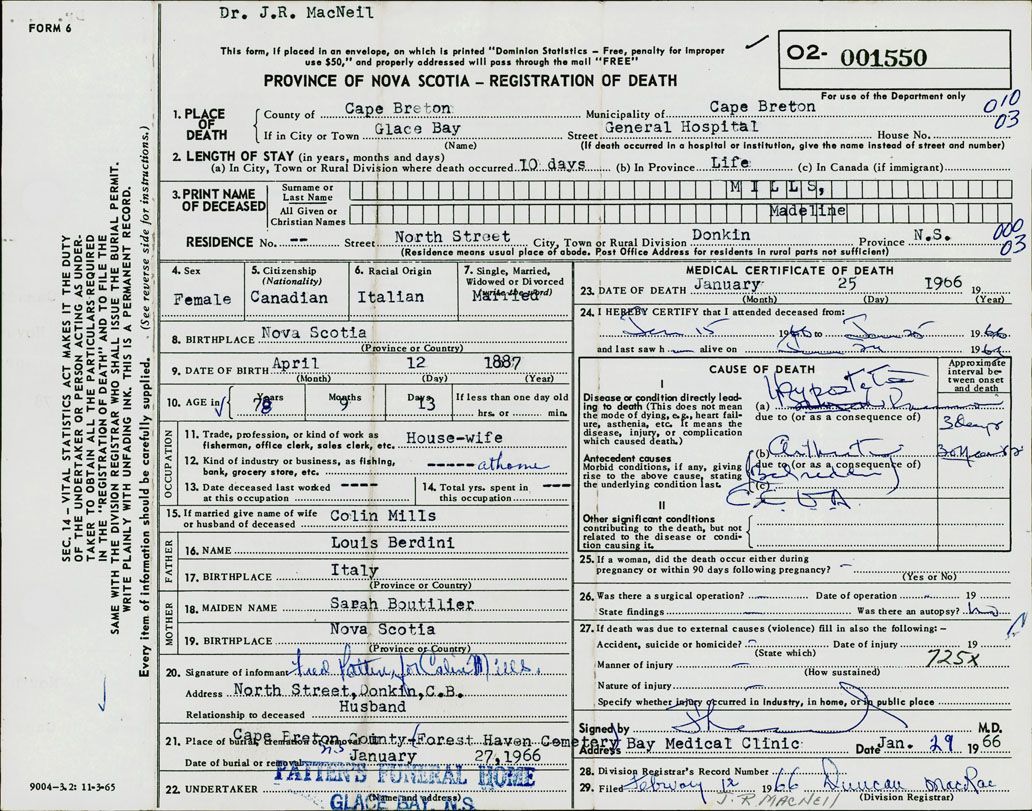 Dr. J.R. MacNeil
FORM 6
This form, if placed in an envelope, on which is printed "Dominion Statistics – Free, penalty for improper
use $50," and properly addressed will pass through the mail "FREE"
O2- 001550
PROVINCE OF NOVA SCOTIA – REGISTRATION OF DEATH
For use of the Department only
010
03
1. PLACE OF DEATH
County of Cape Breton Municipality of Cape Breton
If in City or Town Glace Bay Street General Hospital House No.
(Name) (If death occurred in a hospital or institution, give the name instead of street and number)
2. LENGTH OF STAY (in years, months and days)
(a) In City, Town or Rural Division where death occurred 10 days (b) In Province Life (c) In Canada (if immigrant)
3. PRINT NAME OF DECEASED
Surname or Last Name MILLS,
All Given or Christian Names Madeline
RESIDENCE No. -- Street North Street City, Town or Rural Division Donkin Province N.S.
000
03
(Residence means usual place of abode. Post Office Address for residents in rural parts not sufficient)
4. Sex
Female
5. Citizenship (Nationality)
Canadian
6. Racial Origin
Italian
7. Single, Married, Widowed or Divorced
Married
8. BIRTHPLACE Nova Scotia
(Province or Country)
9. DATE OF BIRTH April 12 1887
(Month) (Day) (Year)
10. AGE in Years Months Days If less than one day old
78 9 13 hrs. or min.
OCCUPATION
11. Trade, profession, or kind of work as fisherman, office clerk, sales clerk, etc. House-wife
12. Kind of industry or business, as fishing, bank, grocery store, etc. ----- at home
13. Date deceased last worked at this occupation ----
14. Total yrs. spent in this occupation ----
15. If married give name of wife or husband of deceased Colin Mills
FATHER
16. NAME Louis Berdini
17. BIRTHPLACE Italy
(Province or Country)
MOTHER
18. MAIDEN NAME Sarah Boutilier
19. BIRTHPLACE Nova Scotia
(Province or Country)
20. Signature of informant Fred Patten, for Colin Mills.
Address North Street, Donkin, C.B.
Relationship to deceased Husband
21. Place of burial, cremation or removal Cape Breton County-Forest Haven Cemetery
N.S
Date of burial or removal January 27,1966
22. UNDERTAKER PATTEN'S FUNERAL HOME
(Name and address)
GLACE BAY, N.S.
MEDICAL CERTIFICATE OF DEATH
23. DATE OF DEATH January 25 1966 19
(Month) (Day) (Year)
24. I HEREBY CERTIFY that I attended deceased from:
Jan 15 1966 to Jan 25 1966
and last saw h alive on Jan 24 1966
CAUSE OF DEATH
Approximate interval between onset and death
I
Disease or condition directly leading to death (This does not mean the mode of dying, e.g., heart failure, asthenia, etc. It means the disease, injury, or complication which caused death.)
(a) Hypostatic
due to (or as a consequence of)
3 days
Antecedent causes
Morbid conditions, if any, giving rise to the above cause, stating the underlying condition last.
(b) Arthritis
due to (or as a consequence of)
(Bedridden)
(c)
II
Other significant conditions contributing to the death, but not related to the disease or condition causing it.
25. If a woman, did the death occur either during pregnancy or within 90 days following pregnancy? –
(Yes or No)
26. Was there a surgical operation? – Date of operation – 19
State findings – Was there an autopsy? no
27. If death was due to external causes (violence) fill in also the following: –
Accident, suicide or homicide? – Date of injury 19
(State which)
725X
Manner of injury –
(How sustained)
Nature of injury –
Specify whether injury occurred in Industry, in home, or in public place
Signed by M.D.
Address Bay Medical Clinic Date Jan. 29 1966
28. Division Registrar's Record Number
29. Filed February 12 1966 Duncan MacRae
(Division Registrar)
J.R MACNEIL
SEC. 14 – VITAL STATISTICS ACT MAKES IT THE DUTY
OF THE UNDERTAKER OR PERSON ACTING AS UNDER-
TAKER TO OBTAIN ALL THE PARTICULARS REQUIRED
IN THE "REGISTRATION OF DEATH" AND TO FILE THE
SAME WITH THE DIVISION REGISTRAR WHO SHALL ISSUE THE BURIAL PERMIT.
WRITE PLAINLY WITH UNFADING INK. THIS IS A PERMANENT RECORD.
Every item of information should be carefully supplied. (See reverse side for instructions.)
9004–3.2: 11-3-65